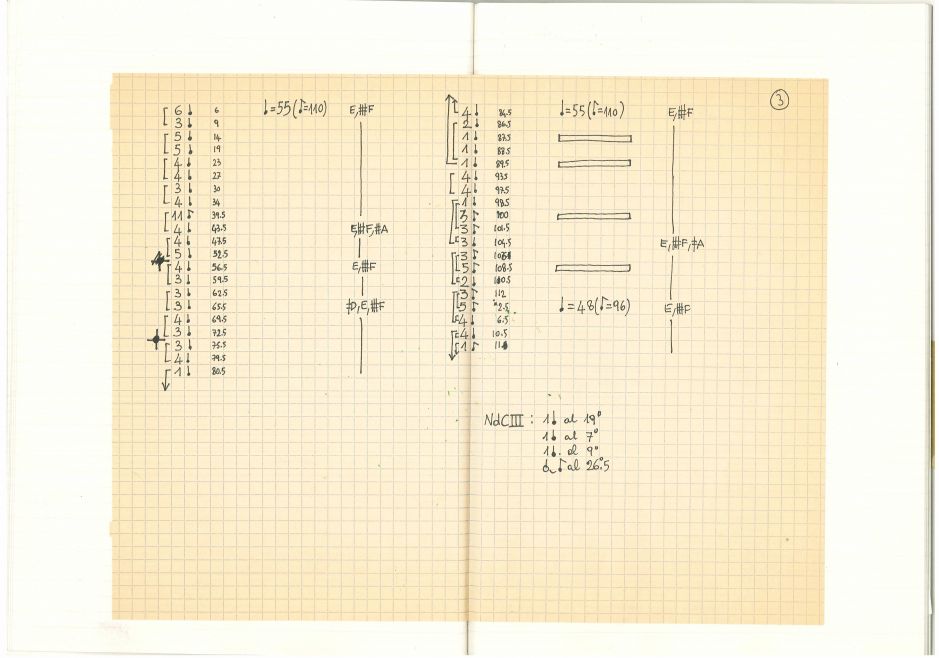 6 ♩ 6 ♩=55(♪=110) E,#F
3 ♩ 9
5 ♩ 14
5 ♩ 19
4 ♩ 23
4 ♩ 27
3 ♩ 30
4 ♩ 34
11 ♪ 39.5
4 ♩ 43.5 E,#F,#A
4 ♩ 47.5
5 ♩ 52.5
4 ♩ 56.5 E,#F
3 ♩ 59.5
3 ♩ 62.5
3 ♩ 65.5 #D,E,#F
4 ♩ 69.5
3 ♩ 72.5
3 ♩ 75.5
4 ♩ 79.5
1 ♩ 80.5
3
4 ♩ 84.5 ♩=55(♪=110) E,#F
2 ♩ 86.5
1 ♩ 87.5
1 ♩ 88.5
1 ♩ 89.5
4 ♩ 93.5
4 ♩ 97.5
1 ♩ 98.5
3 ♪ 100
3 ♪ 101.5
3 ♩ 104.5 E,#F,#A
3 ♪
5 ♪ 108.5
2 ♩ 110.5
3 ♪ 112
5 ♪ 2.5 ♩=48(♪=96) E,#F
4 ♩ 6.5
4 ♩ 10.5
1 ♪ 11
NdCIII : 1♩ al 19°
1♩ al 7°
1♩. al 9°
♪ al 26°.5